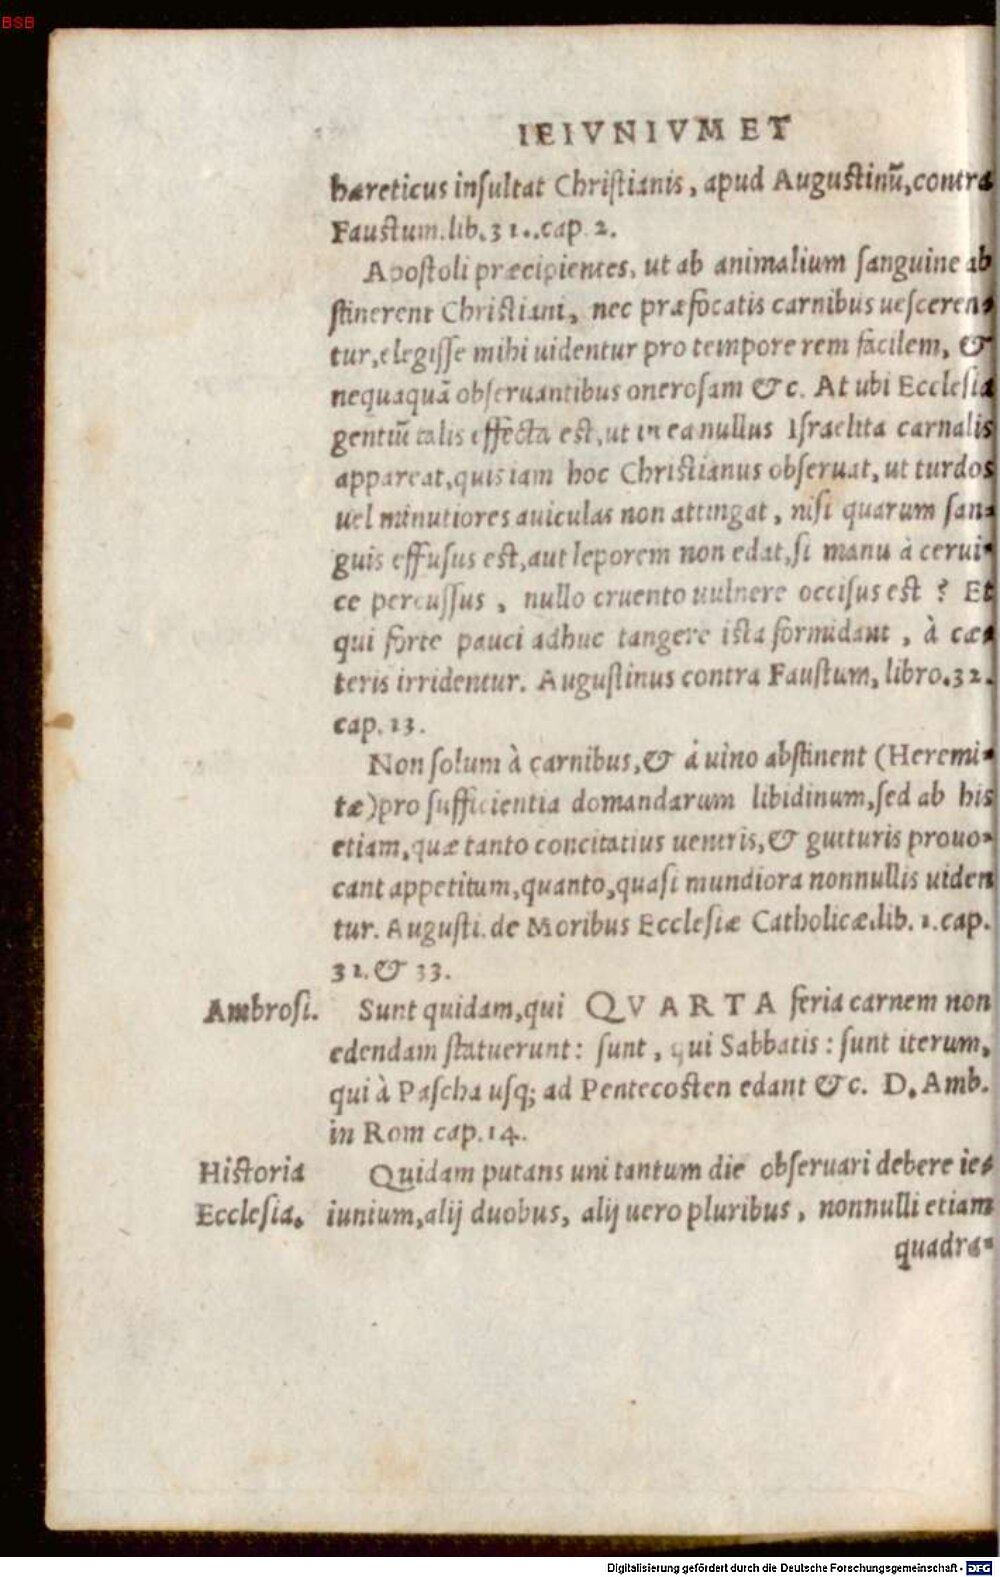 BSB
IEIVNIVM ET
hæreticus insultat Christianis, apud Augustinū, contra
Faustum. lib. 31.. cap. 2.
Apostoli præcipientes, ut ab animalium sanguine ab
stinerent Christiani, nec præfocatis carnibus uesceren-
tur, elegisse mihi uidentur pro tempore rem facilem, &
nequaquā obseruantibus onerosam &c. At ubi Ecclesia
gentiū talis effecta est, ut in ea nullus Israelita carnalis
appareat, quis iam hoc Christianus obseruat, ut turdos
uel minutiores auiculas non attingat, nisi quarum san-
guis effusus est, aut leporem non edat, si manu à cerui-
ce percussus, nullo cruento uulnere occisus est? Et
qui forte pauci adhuc tangere ista formidant, à cæ-
teris irridentur. Augustinus contra Faustum, libro. 32.
cap. 13.
Non solum à carnibus, & á uino abstinent (Heremi-
tæ) pro sufficientia domandarum libidinum, sed ab his
etiam, quæ tanto concitatius uentris, & gutturis prouo-
cant appetitum, quanto, quasi mundiora nonnullis uiden
tur. Augusti. de Moribus Ecclesiæ Catholicæ. lib. 1. cap.
31. & 33.
Ambrosi. Sunt quidam, qui QVARTA feria carnem non
edendam statuerunt: sunt, qui Sabbatis: sunt iterum,
qui à Pascha usq; ad Pentecosten edant &c. D. Amb.
in Rom cap. 14.
Historia Quidam putans uni tantum die obseruari debere ie-
Ecclesia. iunium, alij duobus, alij uero pluribus, nonnulli etiam
quadra-
Digitalisierung gefördert durch die Deutsche Forschungsgemeinschaft - DFG